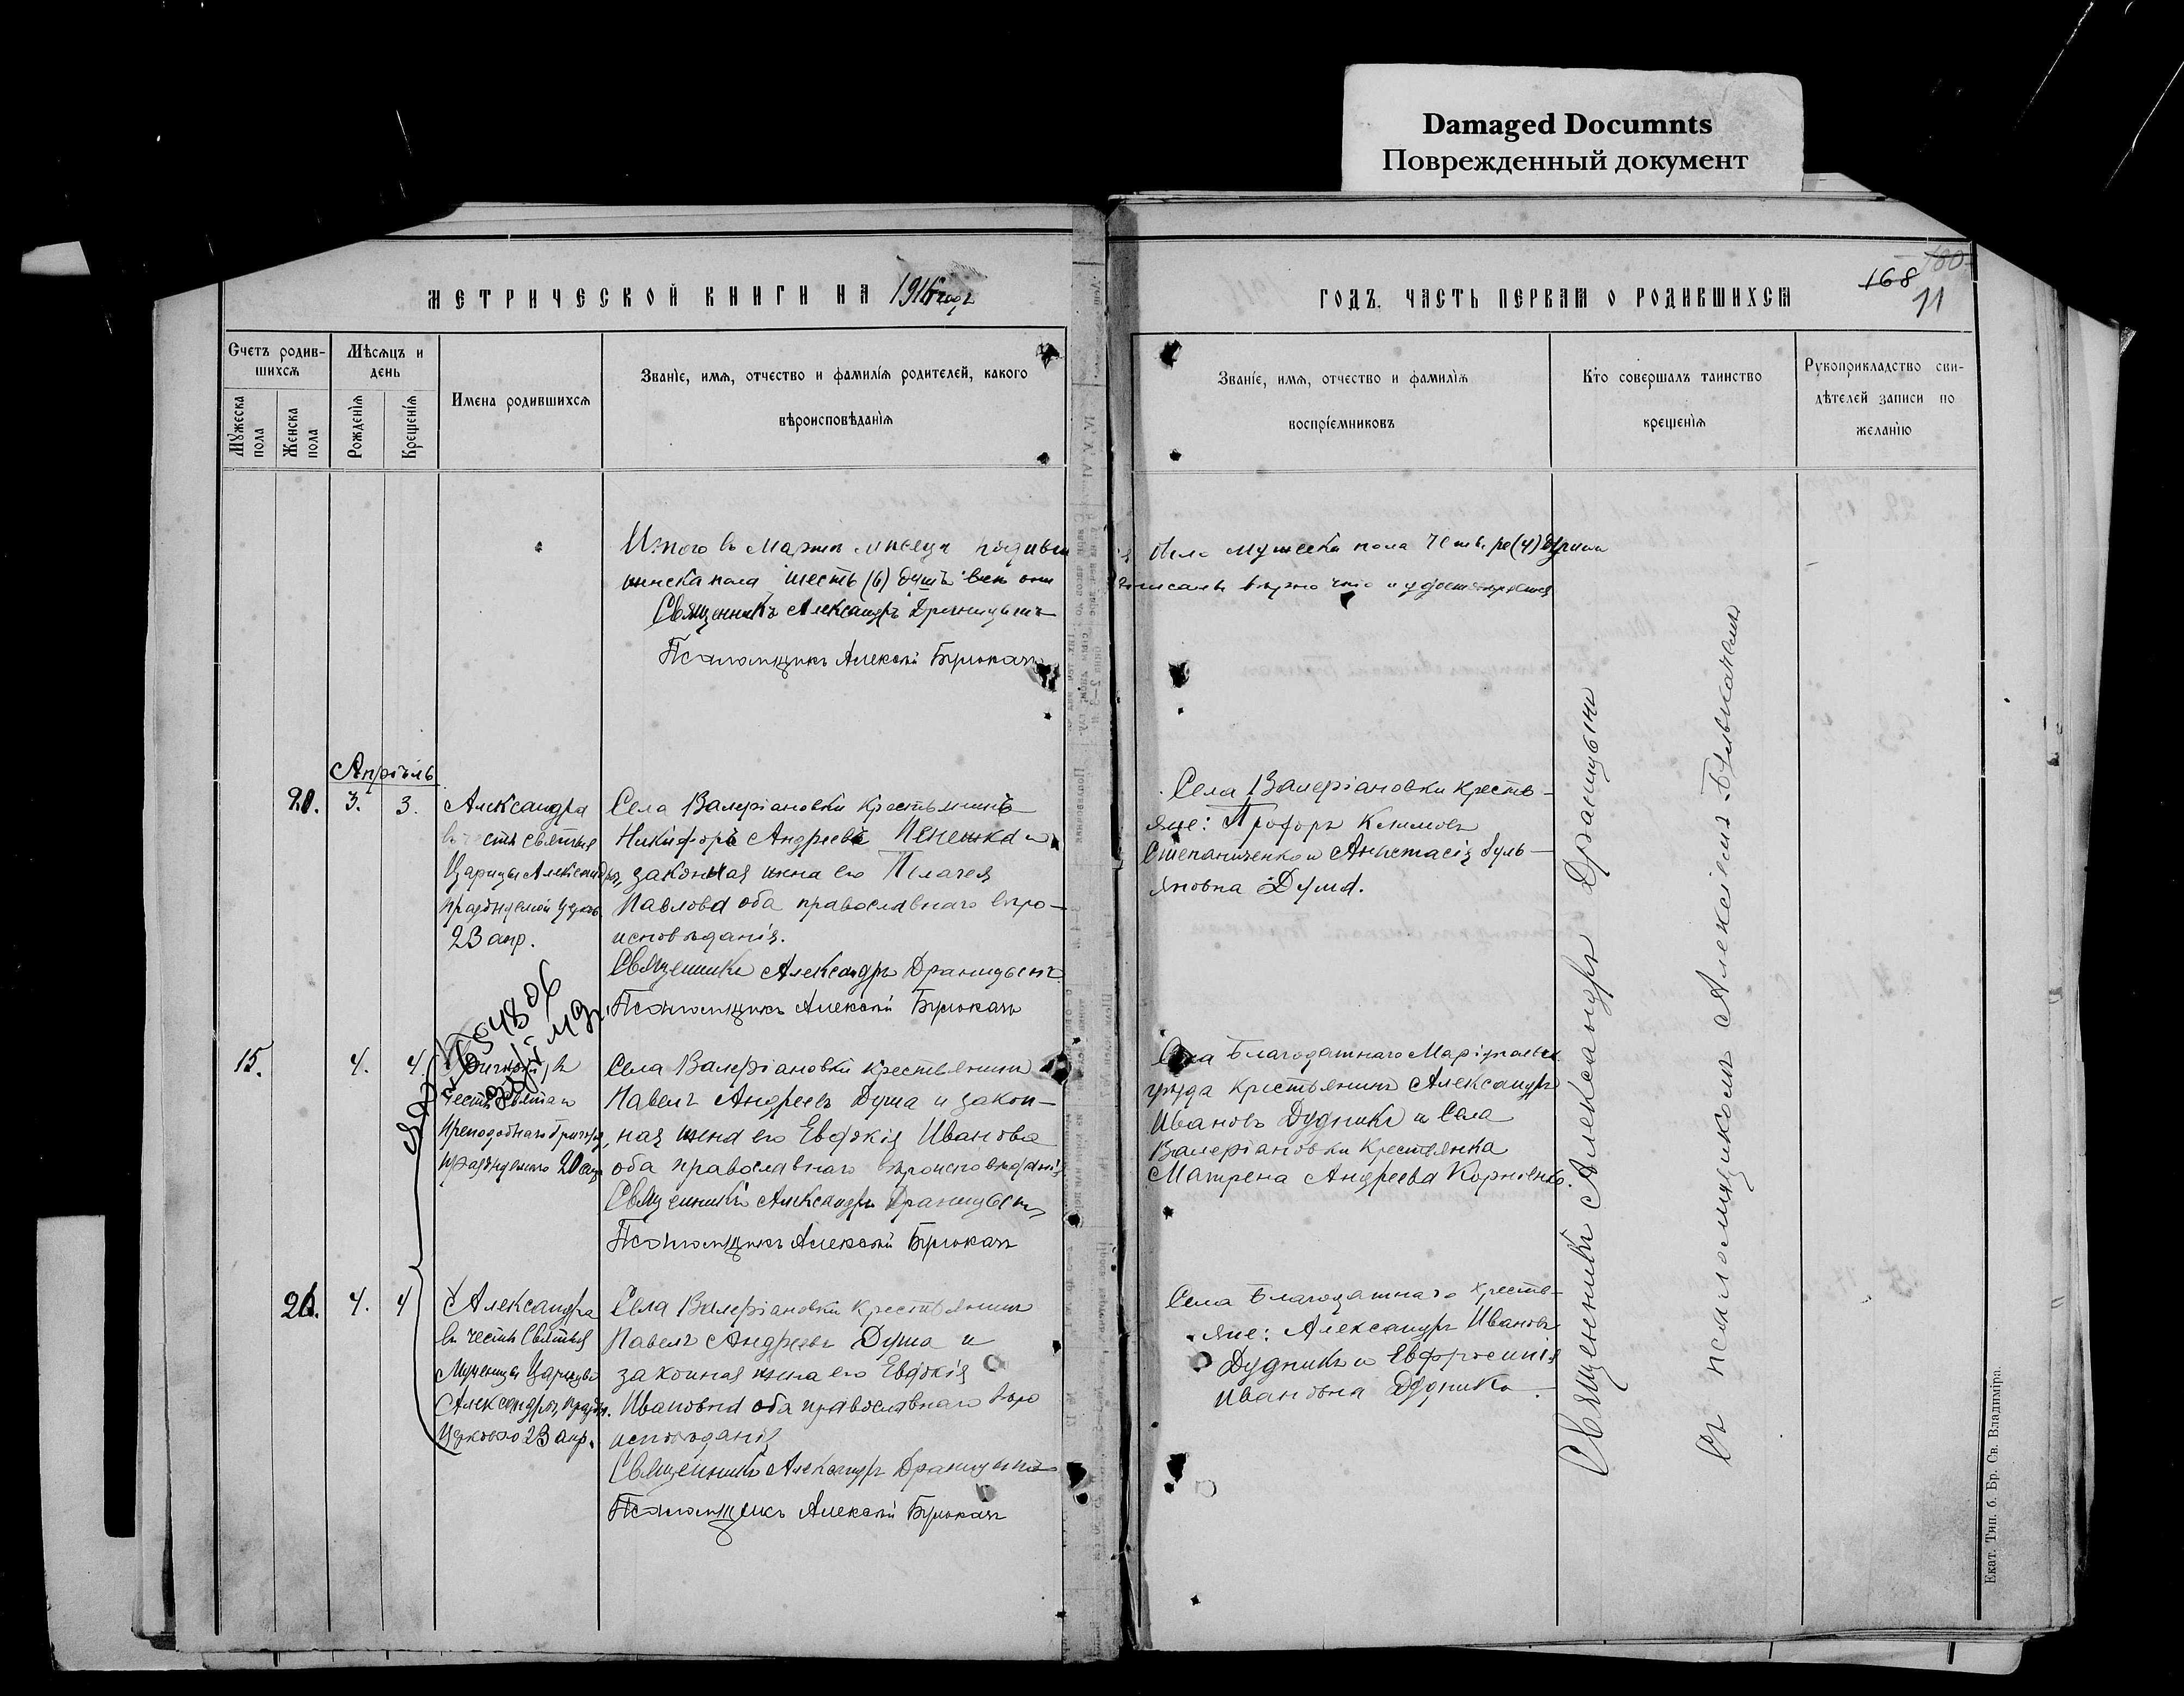 Damaged Documnts
Поврежденный документ
МЕТРИЧЕСКОЙ КНИГИ НА 1916 годъ
ГОДЪ. ЧАСТЬ ПЕРВАЯ О РОДИВШИХСЯ
168
11
Счетъ родив-
шихся
Мужеска пола
Женска пола
Мѣсяцъ и
день
Рожденія
Крещенія
Имена родившихся
Званіе, имя, отчество и фамилія родителей, какого
вѣроисповѣданія
Званіе, имя, отчество и фамилія
воспріемниковъ
Кто совершалъ таинство
крещенія
Рукоприкладство сви-
дѣтелей записи по
желанію
Итого въ Мартѣ мѣсяцѣ
было мужеска пола четыре (4)
женска пола шесть (6) душъ всѣ они
записаны вѣрно что и удостовѣряемъ
Священникъ Александръ Драницынъ
Псаломщикъ Алексѣй Бульокачъ
Апрѣль
20.
3.
3.
Александра
въ честь святыя
Царицы Александры,
празднуемой церков.
23 апр.
Села Валеріановки крестьянинъ
Никифоръ Андреевъ и
законная жена его Пелагея
Павлова оба православнаго вѣро-
исповѣданія.
Священникъ Александръ Драницынъ
Псаломщикъ Алексѣй Бульокачъ
Села Валеріановки кресть-
яне: Профоръ Климовъ
Степаниченко и Анастасія Уль-
яновна Дума.
15.
4.
4.
Григорій, въ
честь святаго
Преподобнаго Григорія,
празднуемаго 20 апр
Села Валеріановки крестьянинъ
Павелъ Андреевъ Дума и закон-
ная жена его Евдокія Иванова
оба православнаго вѣроисповѣданія
Священникъ Александръ Драницынъ
Псаломщикъ Алексѣй Бульокачъ
Села Благодатнаго Маріупольск.
уѣзда крестьянинъ Александръ
Ивановъ Дудникъ и села
Валеріановки крестьянка
Матрена Андреева Корніенко.
21.
4.
4
Александра
въ честь Святыя
Мученицы Царицы
Александры, праздн.
церковью 23 апр.
Села Валеріановки крестьянинъ
Павелъ Андреевъ Дума и
законная жена его Евдокія
Ивановна оба православнаго вѣро
исповѣданія
Священникъ Александръ Драницынъ
Псаломщикъ Алексѣй Бульокачъ
Села Благодатнаго кресть-
яне: Александръ Ивановъ
Дудникъ и Евфросинія
Ивановна Дудникъ.
Священникъ Александръ Драницынъ
съ псаломщикомъ Алексѣемъ Бульокачемъ
Екат. Тип. б. Бр. Св. Владиміра.